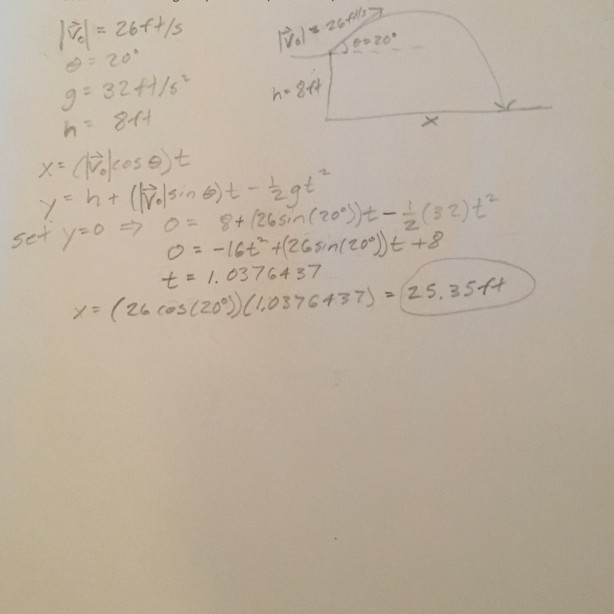 |v⃗₀| = 26ft/s
θ = 20°
g = 32ft/s²
h = 8ft
|v⃗₀| = 26ft/s
θ=20°
h=8ft
x
x=(|v⃗₀|cosθ)t
y= h+(|v⃗₀|sinθ)t - ½gt²
set y=0 ⇒ 0= 8+(26sin(20°))t - ½(32)t²
0 = -16t²+(26sin(20°))t +8
t = 1.0376437
x= (26cos(20°))(1.0376437) = 25.35ft